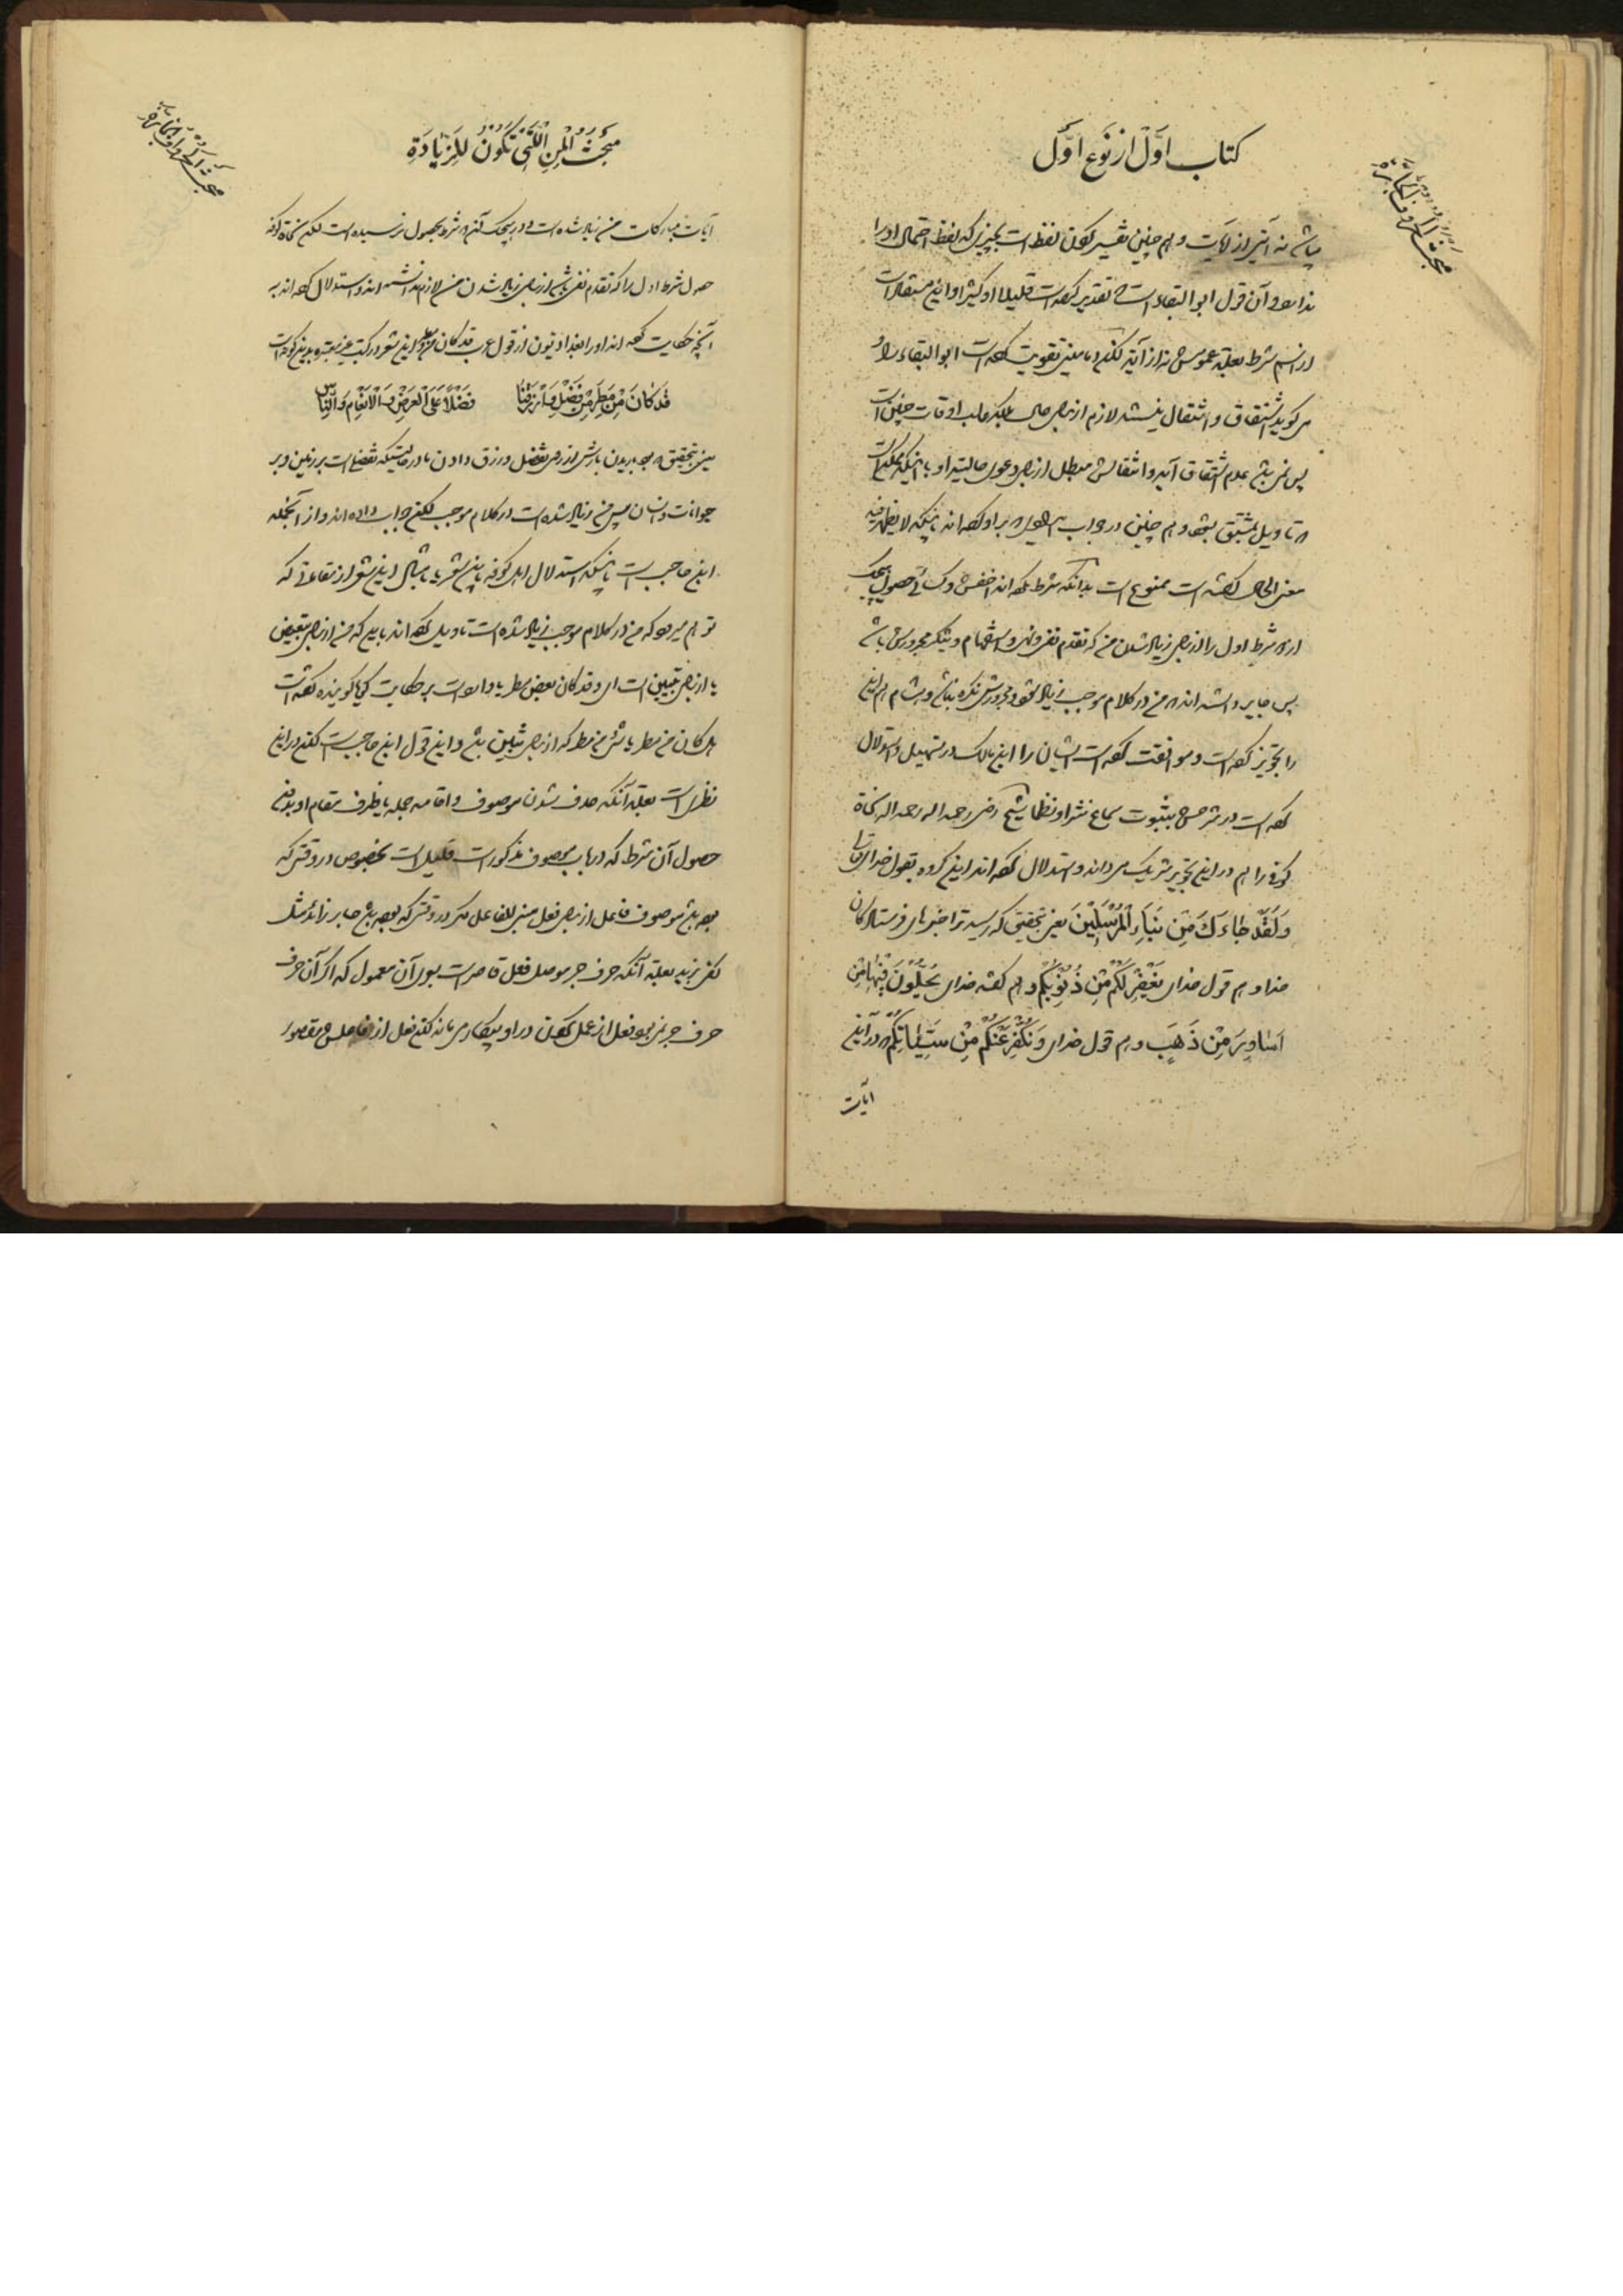 کتاب اول از نوع اول
مبحث الحروف الجارة
نه آیتی از آیات و هم چنین تفسیر کردن لفظ است بچیزیکه لفظ احتمال او را
ندارد و آن قول ابو البقاء است که تقدیر کرده است قلیلا او کثیرا و این
از اسم شرط بعلة عمومش نه از آیة لکن دمامینی تقویت کرده است ابو البقاء را و
می گوید اشتقاق و انتقال نیستند لازم از برای حال بلکه غالب اوقات چنین است
پس نمی باشد عدم اشتقاق آیه و انتقالش مبطل از برای دعوی حالیة او با اینکه ممکن است
تاویل بمشتق بشود و هم چنین در جواب بر او کرده اند باینکه لا یظهر فیه
معنی الحال گفته است ممنوع است بدانکه شرط نکرده اند اخفش و کسائی حصول هیچیک
از دو شرط اول را از برای زیاد شدن من که تقدم نفی و نهی و استفهام و نکره مجرورش باشد
پس جایز دانسته اند که من در کلام موجب زیاد شود و مجرورش نکره نباشد و هشام هم این
را تجویز کرده است و موافقت کرده است ایشان را ابن مالک در تسهیل و استدلال
کرده است در شرحش بثبوت سماع نثرا و نظما شیخ رضی رحمه الله نحاة
کوفه را هم در این تجویز شریک می داند و استدلال کرده اند این گروه بقول خدای تعالی
وَلَقَدْ جَاءَكَ مِن نَّبَإِ الْمُرْسَلِينَ یعنی بتحقیق که رسید ترا خبرهای فرستادگان
خدا و هم قول خدای یَغْفِرْ لَكُم مِّن ذُنُوبِكُمْ و هم گفته خدای يُحَلَّوْنَ فِيهَا مِنْ
أَسَاوِرَ مِن ذَهَبٍ و هم قول خدای وَنُكَفِّرُ عَنكُم مِّن سَيِّئَاتِكُمْ که در این
آیات
مبحث المن التی تکون للزیادة
مبحث الحروف الجارة
آیات مبارکات من زیاد شده است و در هیچیک آن دو شرط بحصول نرسیده است لکن نحاة کوفه
حصول شرط اول را که تقدم نفی باشد از برای زیاد شدن من لازم ندانسته اند و استدلال کرده اند به
آنچه حکایت کرده اند او را بغدادیون از قول عرب قد کان من مطر و این شعر در کتب غیر معتبره بدین گونه است
قَد کَانَ مِن مَطَرٍ مِن فَضْلٍ وَارْزَقْنَا فَضْلًا عَلَی العَرْضِ وَالْاَنْعَامِ وَالنَّاسِ
یعنی بتحقیق که بود باریدن بارش از روی تفضل و رزق دادن ما در حالتیکه تفضل است بر زمین و بر
حیوانات و انسان پس من زیاد شده است در کلام موجب لکن جواب داده اند و از آنجمله
ابن حاجب است باینکه استدلال اهل کوفه باین شعر یا بامثال این شعر از نقاطی که
توهم میرود که من در کلام موجب زیاد شده است تاویل کرده اند باید که من از برای تبعیض
یا از برای تبیین است ای و قد کان بعض مطر یا وارد است بر حکایت گویا گوینده گفته است
هل کان من مطر یا شیء من مطر که از برای تبیین باشد و این قول ابن حاجب است لکن در این
نظر است بعلة آنکه حذف شدن موصوف و اقامه جمله یا ظرف مقام او بدون
حصول آن شرط که در باب موصوف مذکور است قلیل است بخصوص در وقتی که
بوده باشد موصوف فاعل از برای فعل مبنی للفاعل مگر در وقتی که بوده باشد جار زائد مثل
کفی بزید بعلة آنکه حرف جر موصل فعل قاصر است بسوی آن معمول که اگر آن حرف
حرف جر نمی بود فعل از عمل کردن در او بیکار می ماند لکن فعل از فاعلش مقصور